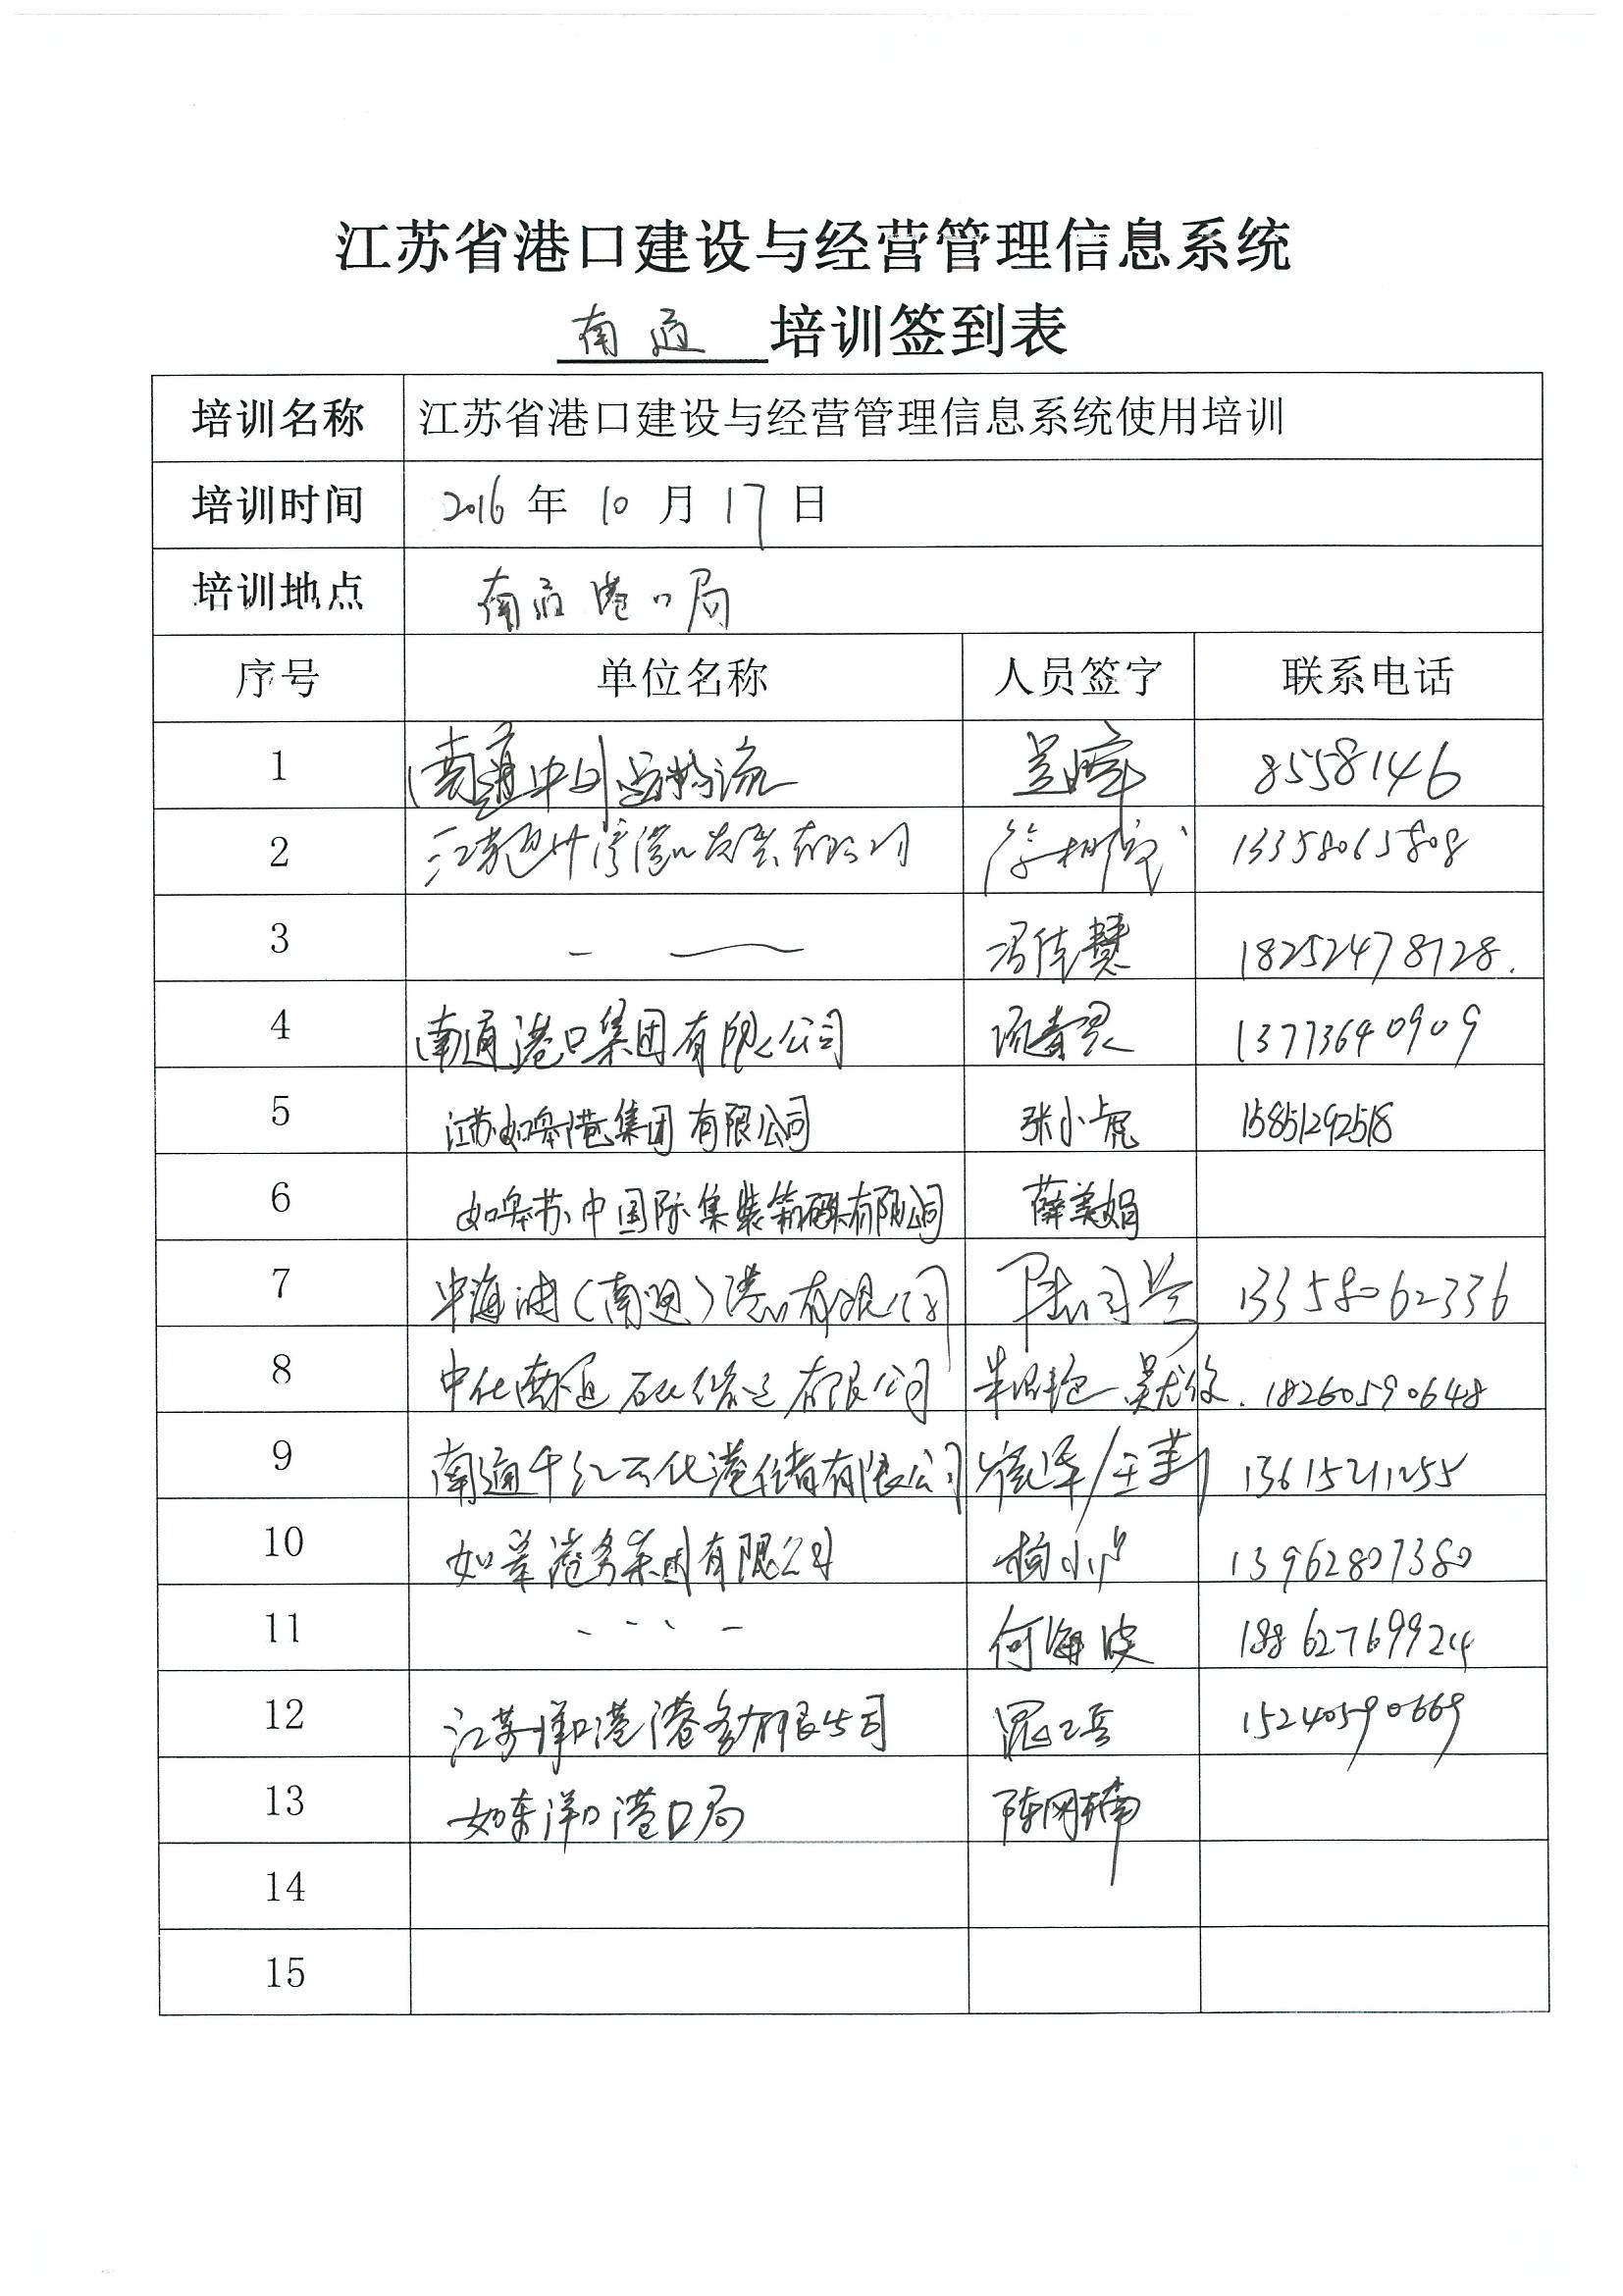 江苏省港口建设与经营管理信息系统
南通 培训签到表
培训名称 江苏省港口建设与经营管理信息系统使用培训
培训时间 2016 年 10 月 17 日
培训地点 南通港口局
序号 单位名称 人员签字 联系电话
1 南通中外运物流 8558146
2 江苏通州湾港口发展有限公司 13358065808
3 冯佳慧 18252478728.
4 南通港口集团有限公司 13773640909
5 江苏如皋港集团有限公司 张小虎 15851292518
6 如皋苏中国际集装箱码头有限公司 薛美娟
7 中海油(南通)港口有限公司 13358062336
8 中化南通石化储运有限公司 18260590648
9 南通千红石化港储有限公司 13615211255
10 如皋港务集团有限公司 13962807380
11 何海波 18862769924
12 江苏洋口港港务有限公司 15240590669
13 如东洋口港口局
14
15